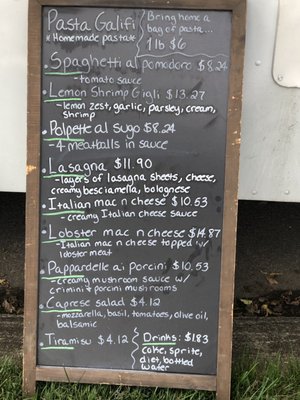 Pasta Galifi
* Homemade pasta *
Bring home a
bag of pasta...
1lb $6
• Spaghetti al pomodoro $8.24
-tomato sauce
• Lemon Shrimp Gigli $13.27
-lemon zest, garlic, parsley, cream,
shrimp
• Polpette al sugo $8.24
-4 meatballs in sauce
• Lasagna $11.90
-layers of lasagna sheets, cheese,
creamy besciamella, bolognese
• Italian mac n cheese $10.53
-creamy Italian cheese sauce
• Lobster mac n cheese $14.87
-Italian mac n cheese topped w/
lobster meat
• Pappardelle ai porcini $10.53
-creamy mushroom sauce w/
crimini & porcini mushrooms
• Caprese salad $4.12
-mozzarella, basil, tomatoes, olive oil,
balsamic
• Tiramisu $4.12
Drinks: $1.83
coke, sprite,
diet, bottled
water